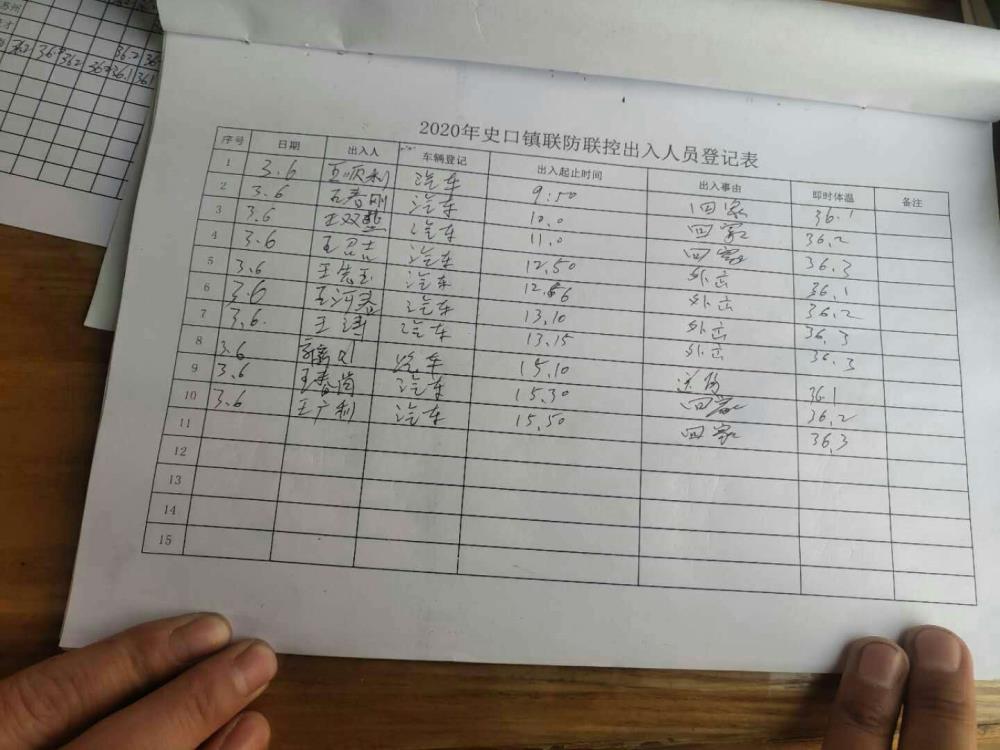 2020年史口镇联防联控出入人员登记表
序号 日期 出入人 车辆登记 出入起止时间 出入事由 即时体温 备注
1 3.6 王顺利 汽车 9:50 回家 36.1
2 3.6 王春刚 汽车 10.0 回家 36.2
3 3.6 王双 汽车 11.0 回家 36.3
4 3.6 汽车 12.50 外出 36.1
5 3.6 王先玉 汽车 12.56 外出 36.2
6 3.6 王河 汽车 13.10 外出 36.3
7 3.6 王涛 汽车 13.15 外出 36.3
8 3.6 汽车 15.10 送货 36.1
9 3.6 王春 汽车 15.30 回家 36.2
10 3.6 王广利 汽车 15.50 回家 36.3
11
12
13
14
15